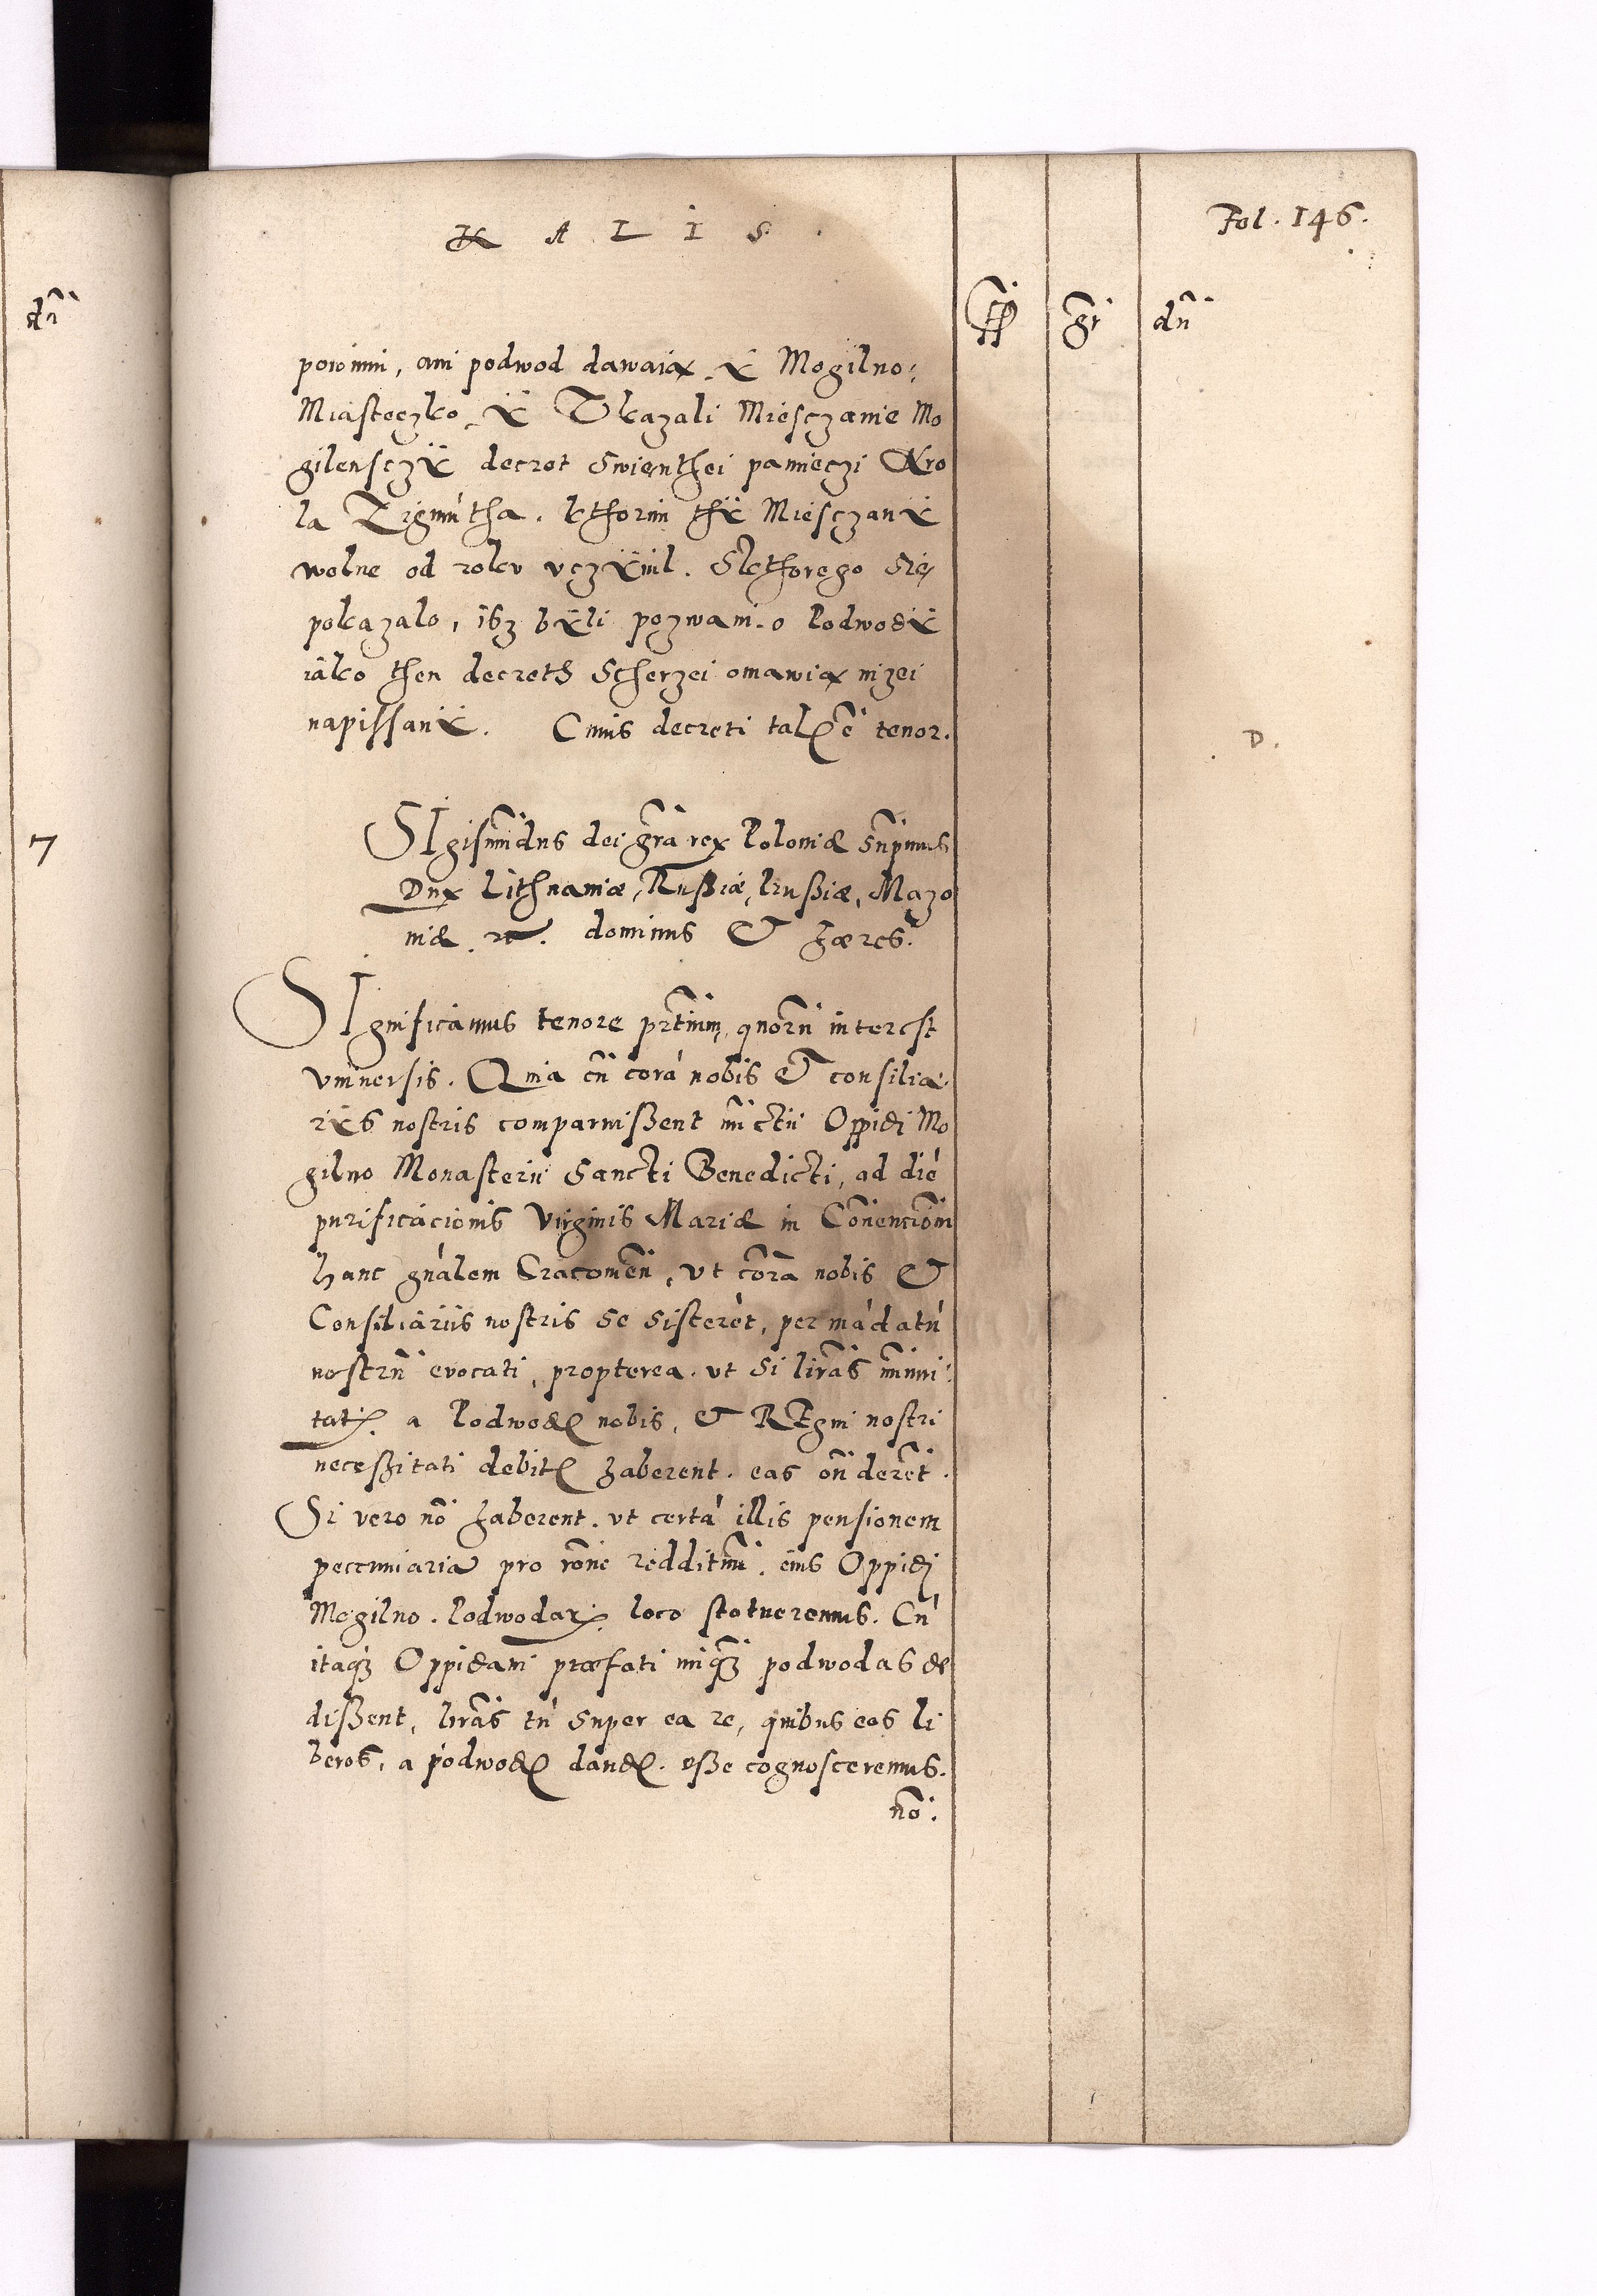 K A L I S .
Fol. 146.
gr dñ
dñ
powinni, ani podwod dawaią. ÿ Mogilno:
Miasteczko. ÿ Vkazali Miesczanie Mo
gilensczÿ decret Swienthei pamieczi Kro
la Zigmuntha. kthorim thÿ Miesczanÿ
wolne od rokv vczÿnil. Skthorego Się
pokazalo, isz bÿli pozwani o Podwodÿ
iako then decreth Scherzei omawią nizei
napissanÿ. Cuius decreti talis ẽ tenor.
7
D.
SIgismũdus dei grã rex Poloniæ Sup̃mus
Dux Lithuaniæ, Rußiæ, Prußiæ, Mazo
uiæ. etc. dominus & hæres.
SIgnificamus tenore pñtium, quorũ interest
vniuersis. Quia cũ corã nobis & consilia.
rÿs nostris comparuißent Oppidi Mo
gilno Monasterii Sancti Benedicti, ad diẽ
purificacionis Virginis Mariæ in Conuencioñ
hanc gñalem Cracouieñ, vt corã nobis &
Consiliariis nostris se sisterẽt, per mãdatũ
nostrũ evocati, propterea. vt si lr̃as im̃uni:
tatis. a Podwodis nobis, & REgni nostri
neceßitati debitis haberent. eas oñderẽt.
Si vero nõ haberent. vt certã illis pensionem
pecuniariã pro rõne reddituũ. eius Oppidi
Mogilno. Podwodarum loco statueremus. Cũ
itaqз Oppidani præfati niqз podwodas de
dißent, lr̃as tñ super ea re, quibus eos li
beros, a podwodis dandis. eße cognosceremus.
nõ.